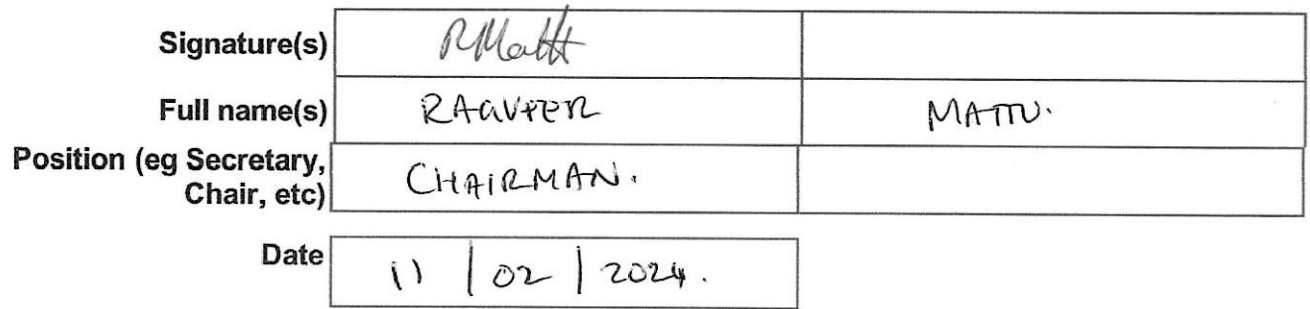 Signature(s) RMatt
Full name(s) RAGVEER MATTU.
Position (eg Secretary,
Chair, etc) CHAIRMAN.
Date 11 / 02 / 2024.